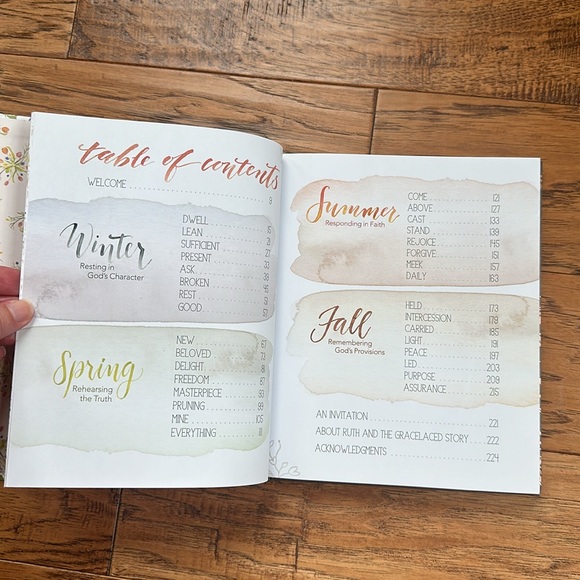 table of contents
WELCOME 9
Winter
Resting in
God's Character
DWELL 15
LEAN 21
SUFFICIENT 27
PRESENT 33
ASK 39
BROKEN 45
REST 51
GOOD 57
Spring
Rehearsing
the Truth
NEW 67
BELOVED 73
DELIGHT 81
FREEDOM 87
MASTERPIECE 93
PRUNING 99
MINE 105
EVERYTHING 111
Summer
Responding in Faith
COME 121
ABOVE 127
CAST 133
STAND 139
REJOICE 145
FORGIVE 151
MEEK 157
DAILY 163
Fall
Remembering
God's Provisions
HELD 173
INTERCESSION 179
CARRIED 185
LIGHT 191
PEACE 197
LED 203
PURPOSE 209
ASSURANCE 215
AN INVITATION 221
ABOUT RUTH AND THE GRACELACED STORY 222
ACKNOWLEDGMENTS 224